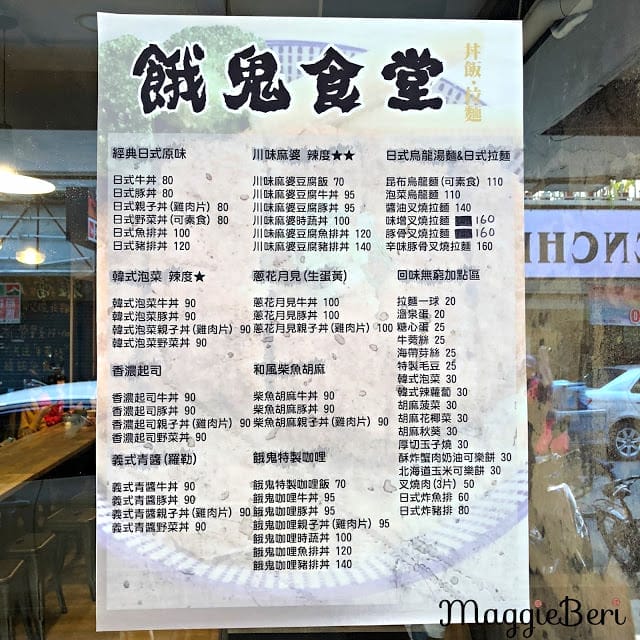 餓鬼食堂
丼飯·拉麵
經典日式原味
日式牛丼 80
日式豚丼 80
日式親子丼(雞肉片) 80
日式野菜丼(可素食) 80
日式魚排丼 100
日式豬排丼 120
韓式泡菜 辣度★
韓式泡菜牛丼 90
韓式泡菜豚丼 90
韓式泡菜親子丼(雞肉片) 90
韓式泡菜野菜丼 90
香濃起司
香濃起司牛丼 90
香濃起司豚丼 90
香濃起司親子丼(雞肉片) 90
香濃起司野菜丼 90
義式青醬(羅勒)
義式青醬牛丼 90
義式青醬豚丼 90
義式青醬親子丼(雞肉片) 90
義式青醬野菜丼 90
川味麻婆 辣度★★
川味麻婆豆腐飯 70
川味麻婆豆腐牛丼 95
川味麻婆豆腐豚丼 95
川味麻婆時蔬丼 100
川味麻婆豆腐魚排丼 120
川味麻婆豆腐豬排丼 140
蔥花月見(生蛋黃)
蔥花月見牛丼 100
蔥花月見豚丼 100
蔥花月見親子丼(雞肉片) 100
和風柴魚胡麻
柴魚胡麻牛丼 90
柴魚胡麻豚丼 90
柴魚胡麻親子丼(雞肉片) 90
餓鬼特製咖哩
餓鬼特製咖哩飯 70
餓鬼咖哩牛丼 95
餓鬼咖哩豚丼 95
餓鬼咖哩親子丼(雞肉片) 95
餓鬼咖哩時蔬丼 100
餓鬼咖哩魚排丼 120
餓鬼咖哩豬排丼 140
日式烏龍湯麵&日式拉麵
昆布烏龍麵(可素食) 110
泡菜烏龍麵 110
醬油叉燒拉麵 140
味增叉燒拉麵 160
豚骨叉燒拉麵 160
辛味豚骨叉燒拉麵 160
回味無窮加點區
拉麵一球 20
溫泉蛋 20
糖心蛋 25
牛蒡絲 25
海帶芽絲 25
特製毛豆 25
韓式泡菜 30
韓式辣蘿蔔 30
胡麻菠菜 30
胡麻花椰菜 30
胡麻秋葵 30
厚切玉子燒 30
酥炸蟹肉奶油可樂餅 30
北海道玉米可樂餅 30
叉燒肉(3片) 50
日式炸魚排 60
日式炸豬排 80
MaggieBeri